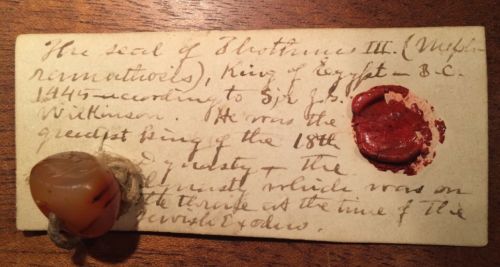 The seal of Thothmes III. (Meph-
ramathosis), King of Egypt – B.C.
1445–according to Sir J. G.
Wilkinson. He was the
greatest King of the 18th
Dynasty – The
dynasty which was on
the throne at the time of The
Jewish Exodus.